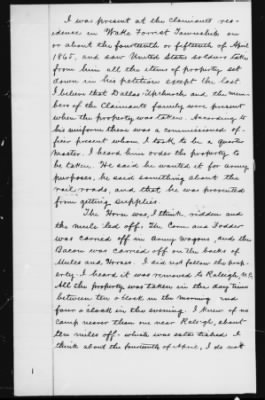 I was present at the claimants res-
idence in Wake Forrest Township on
or about the fourteenth or fifteenth of April
1865, and saw United States soldiers take
from him all the items of property set
down in his petition except the last.
I believe that Dallas Upchurch and the mem-
bers of the Claimants family were present
when the property was taken. According to
his uniform there was a commissioned of-
ficer present whom I took to be a quarter
Master. I heard him order the property to
be taken. He said he wanted it for army
purposes, he said something about the
rail roads, and that he was prevented
from getting supplies.
The Horse was, I think ridden and
the mules led off. The Corn and Fodder
was carried off in Army wagons, and the
Bacon was carried off on the backs of
Mules and Horses. I did not follow the prop-
erty. I heard it was removed to Raleigh, N.C.
All the property was taken in the day time
between ten o clock in the morning and
four o clock in the evening. I knew of no
camp nearer than one near Raleigh, about
ten miles off. which was established I
think about the fourteenth of April, I do not
1